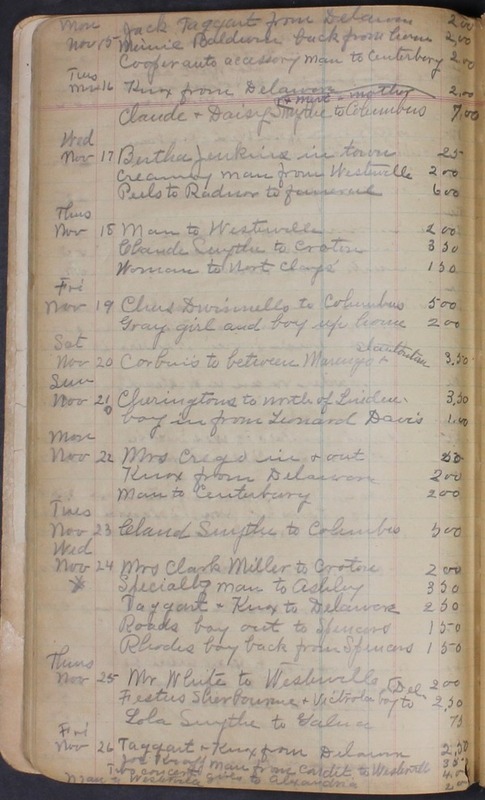 Mon Jack Taggart from Delaware 2.00
Nov 15 Minnie Baldwin back from home 2,00
Cooper auto accessory man to Centerbury 2.00
Tues
Nov 16 Knox from Delaware 2.00
+ mother
Claude + Daisy Smythe to Columbus 7,00
Wed
Nov 17 Bertha Jenkins in town 25
Creamery man from Westerville 2 00
Peels to Radnor to funeral 6 00
Thus
Nov 18 Man to Westerville 2 00
Claude Smythe to Croton 3 50
Woman to Mort Clays 1 50
Fri
Nov 19 Chas Dwinnells to Columbus 5 00
Gray girl and boy up home 2 00
Sat
Nov 20 Corbins to between Marengo + 3,50
Sun
Nov 21 Cheringtons to north of Linden. 3,50
boy in from Leonard Davis 1.00
Mon
Nov 22 Mrs Crego in + out 50
Knox from Delaware 2 00
Man to Centerbury 2 00
Tues
Nov 23 Claud Smythe to Columbus 5 00
Wed
Nov 24 Mrs Clark Miller to Croton 2 00
Specialty man to Ashley 3 50
Taggart + Knox to Delaware 2 50
Roads boy out to Spencers 1 50
Rhodes boy back from Spencers 1 50
Thurs
Nov 25 Mr White to Westerville 2 00
Festus Sherbourne + Victrola boy to Del 2,50
Lola Smythe to Galena 75
Fri
Nov 26 Taggart + Knox from Delawn 2,50
man from Condit to Westervill
Man to Westervill goes to Alexandria